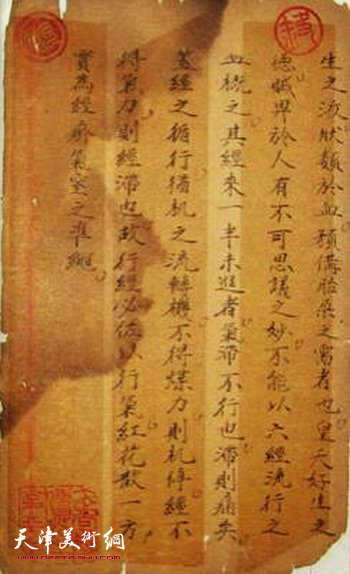 生之液狀類於血預備胎兒之需者也皇天好生之
德賦畀於人有不可思議之妙不能以六經流行之
血概之其經來一半未進者氣滯不行也滯則痛矣
蓋經之循行猶机之流轉機不得煤力則机停經不
得氣力則經滯也故行經必佐以行氣紅花散一方
實為經痹氣塞之準繩
天津美术網
www.022meishu.com